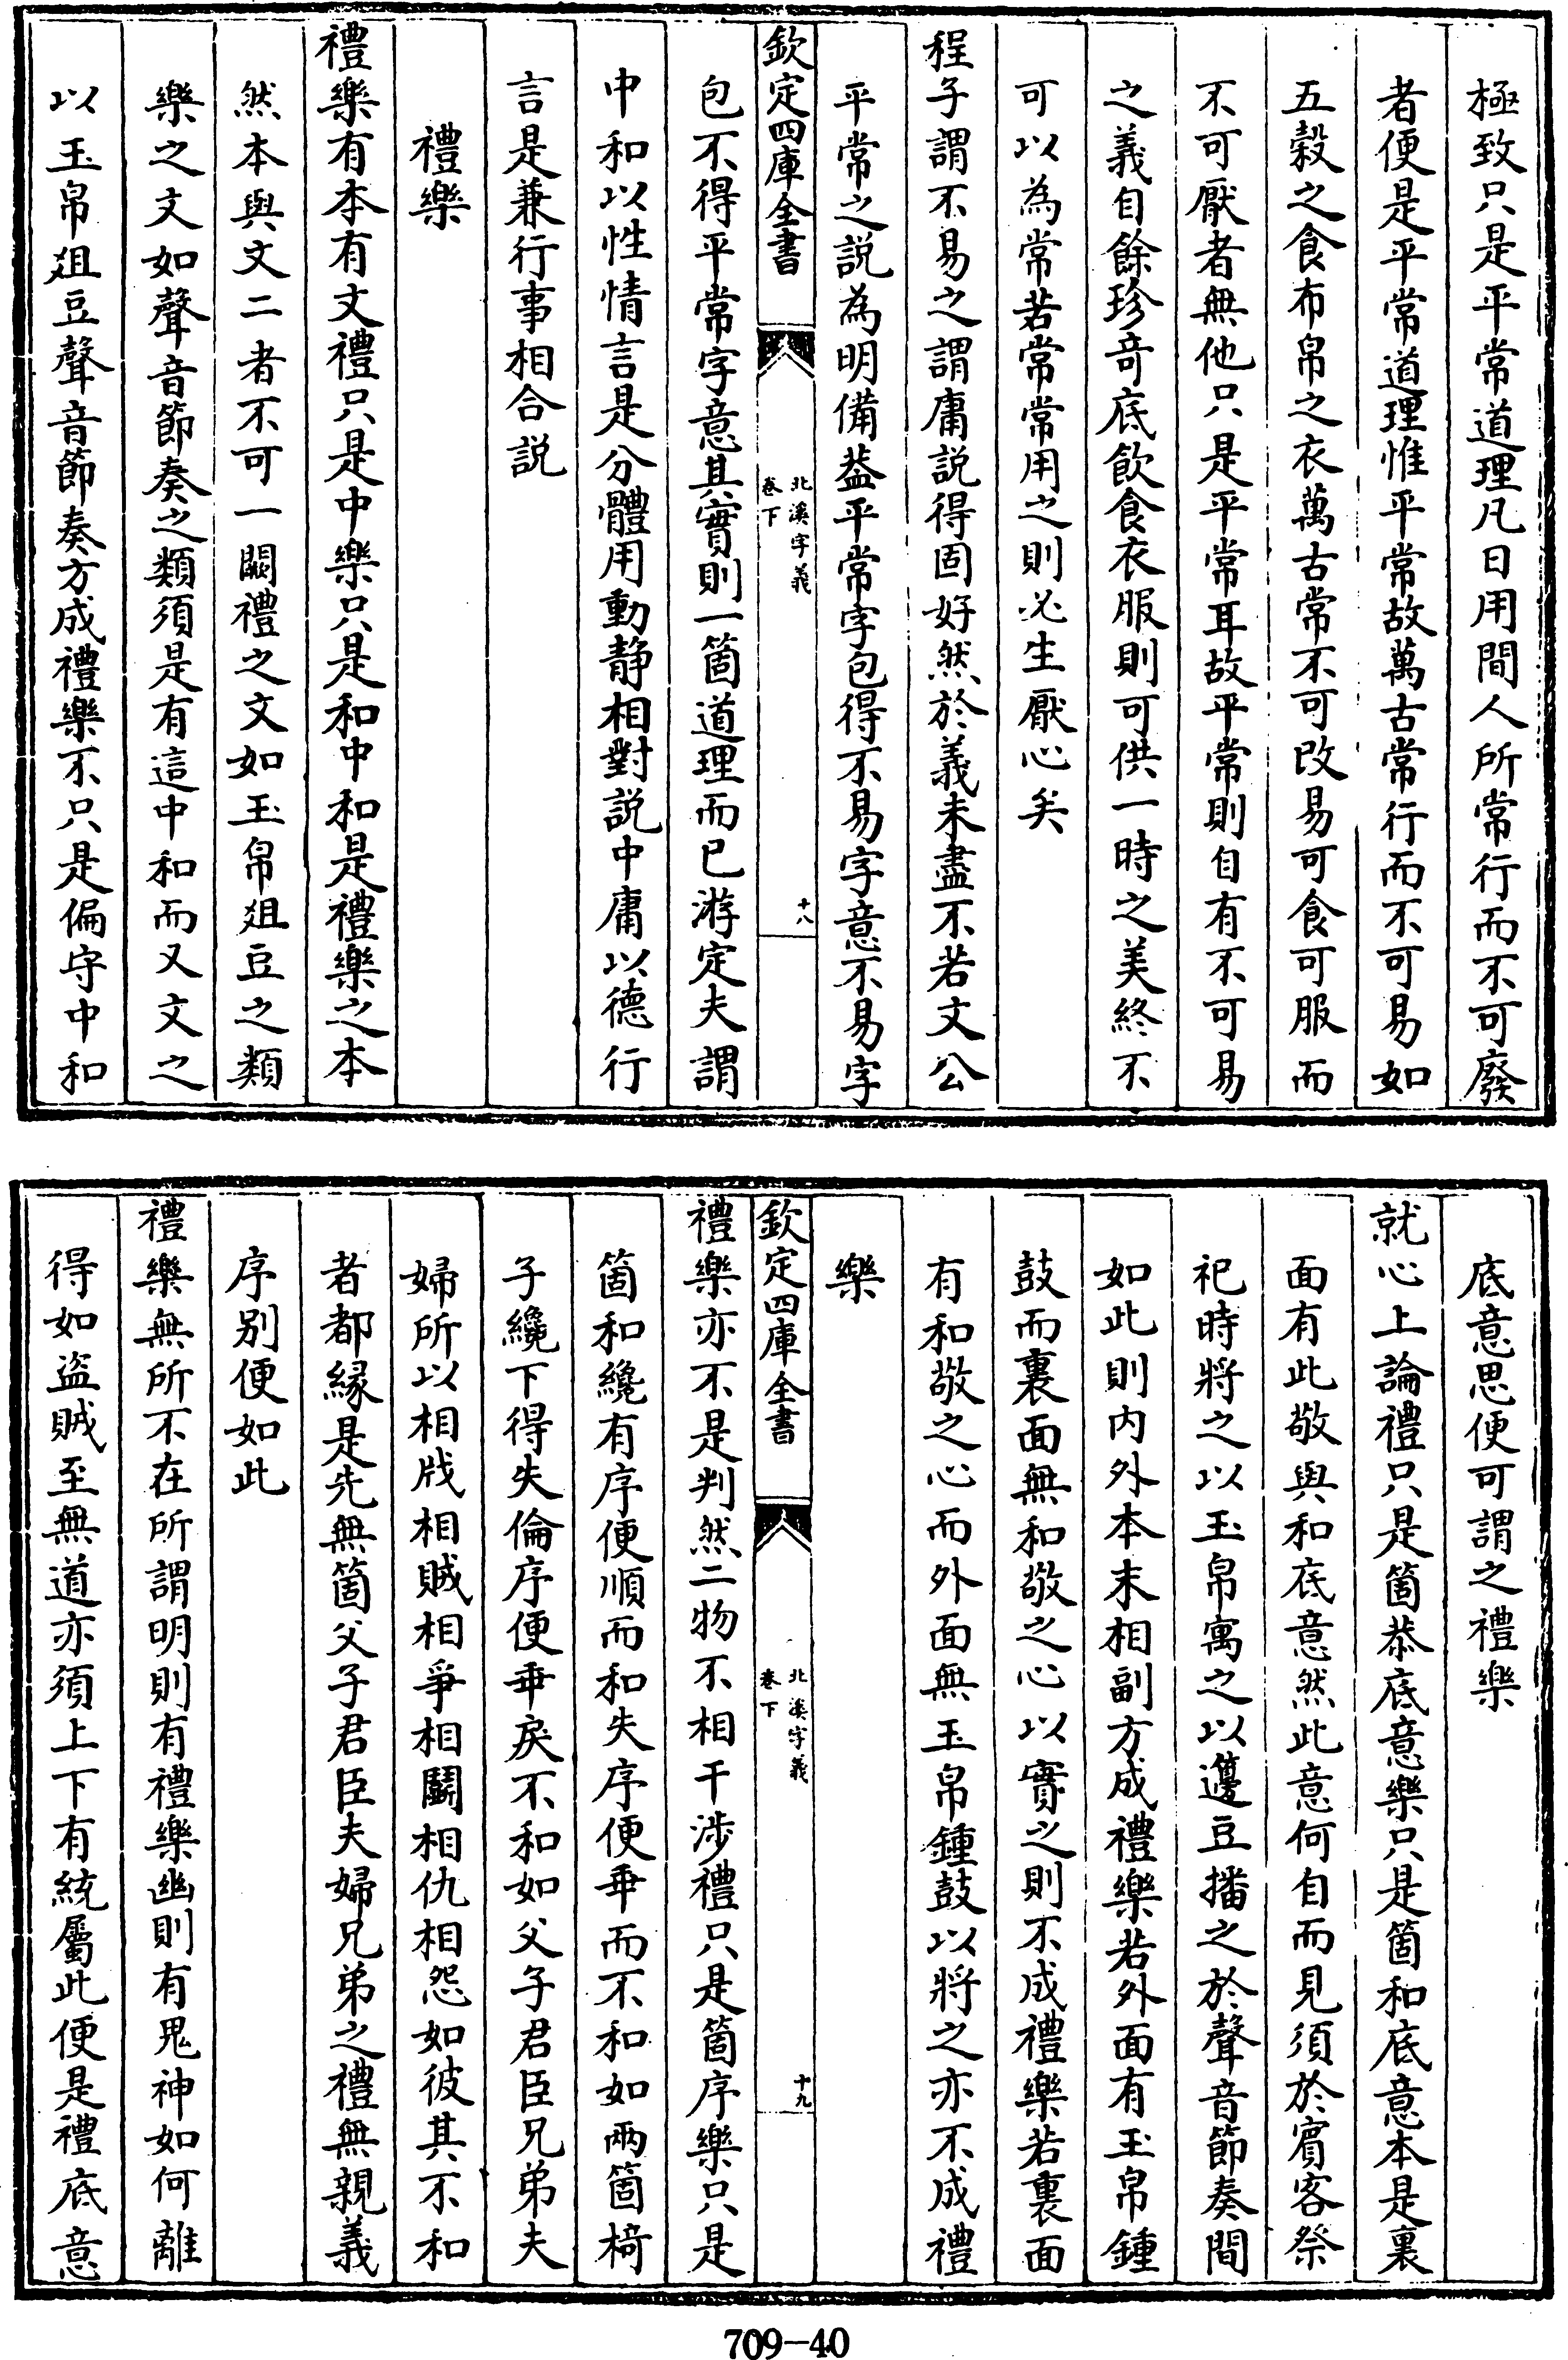 極致只是平常道理凡日用間人所常行而不可廢
者便是平常道理惟平常故萬古常行而不可易如
五穀之食布帛之衣萬古常不可改易可食可服而
不可厭者無他只是平常耳故平常則自有不可易
之義自餘珍竒底飲食衣服則可供一時之美終不
可以為常若常常用之則必生厭心矣
程子謂不易之謂庸説得固好然於義未盡不若文公
平常之説為明備葢平常字包得不易字意不易字
欽定四庫全書
北溪字義
卷下
十八
包不得平常字意其實則一箇道理而已游定夫謂
中和以性情言是分體用動静相對説中庸以德行
言是兼行事相合説
禮樂
禮樂有本有文禮只是中樂只是和中和是禮樂之本
然本與文二者不可一闕禮之文如玉帛俎豆之類
樂之文如聲音節奏之類須是有這中和而又文之
以玉帛俎豆聲音節奏方成禮樂不只是偏守中和
底意思便可謂之禮樂
就心上論禮只是箇恭底意樂只是箇和底意本是裏
面有此敬與和底意然此意何自而見須於賔客祭
祀時將之以玉帛寓之以籩豆播之於聲音節奏間
如此則内外本末相副方成禮樂若外面有玉帛鍾
鼓而裏面無和敬之心以實之則不成禮樂若裏面
有和敬之心而外面無玉帛鍾鼓以將之亦不成禮
樂
欽定四庫全書
北溪字義
卷下
十九
禮樂亦不是判然二物不相干涉禮只是箇序樂只是
箇和纔有序便順而和失序便乖而不和如兩箇椅
子纔下得失倫序便乖戾不和如父子君臣兄弟夫
婦所以相戕相賊相爭相鬭相仇相怨如彼其不和
者都縁是先無箇父子君臣夫婦兄弟之禮無親義
序别便如此
禮樂無所不在所謂明則有禮樂幽則有鬼神如何離
得如盗賊至無道亦須上下有統屬此便是禮底意
709-40